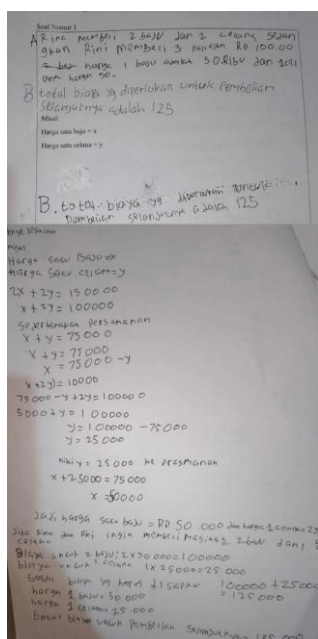 Soal Nomor 1
A Rina memberi 2 baju dan 2 celana sedan
gkan Rini memberi 3 pakaian RP 100.00
harga 1 baju adalah 50.Ribu dan 1cel
ana harga 50.
B total biaya yg diperlukan untuk Pembelian
Selanjutnya adalah 125
Misal:
Harga satu baju = x
Harga satu celana = y
B. total biaya yg diperlukan untuk
Pembelian selanjutnya adalah 125
Harga satu Baju = x
Harga satu celana = y
2x + 2y = 150.00
x + 2y = 100000
Sederhanakan Persamaan
x + y = 75000
x + y = 75000
x = 75000 - y
x + 2y) = 10000
75000 - y + 2y = 100000
5000 + y = 100000
y = 100000 - 75000
y = 25000
y = 25000 ke Prasmanan
x + 25000 = 75000
x = 50000
Jadi harga satu baju = RP 50.000 dan harga 1 celana = 25
Jika Rina dan Rini ingin membeli masing2 2 baju dan 1
celana
Biaya untuk 2 baju: 2 x 50000 = 100000
biaya untuk 1 celana 1 x 25000 = 25000
total biaya yg harus disiapkan 100000 + 25000
= 125000
harga 1 baju = 50.000
harga 1 celana = 25.000
total biaya untuk Pembelian Selanjutnya = 125.000